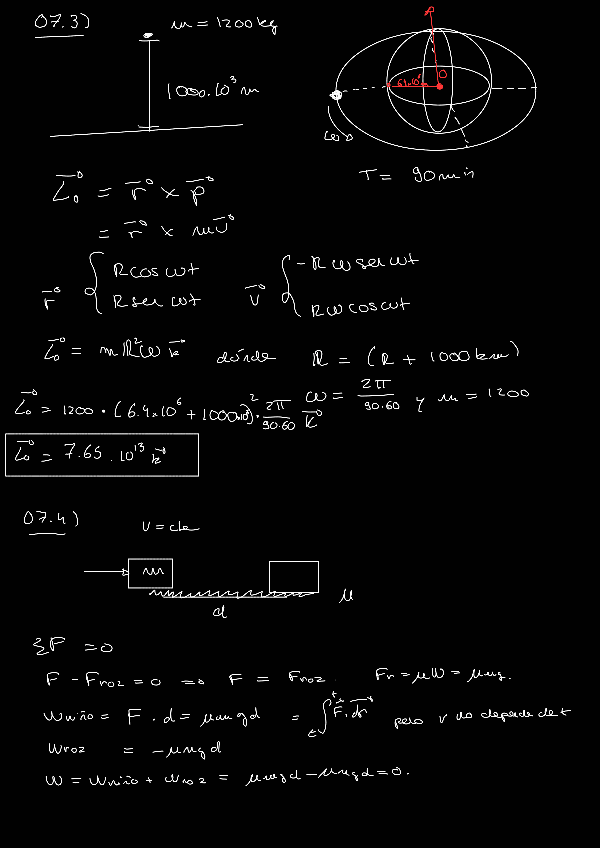 07.3)
m = 1200 kg
1000.10³ m
6.4x10⁶m
O
ω
T = 90 min
L⃗₀ = r⃗ × p⃗
= r⃗ × m v⃗
r⃗ { R cos ωt
R sen ωt
v⃗ { -R ω sen ωt
R ω cos ωt
L⃗₀ = m ℝ² ω k⃗ donde ℝ = (R + 1000 km)
ω = 2π / 90.60 y m = 1200
L⃗₀ = 1200 · (6.4x10⁶ + 1000x10³)² · 2π / 90.60 k⃗
L⃗₀ = 7.65 . 10¹³ k⃗
07.4)
v = cte
m
d
μ
ΣF = 0
F - Froz = 0 => F = Froz. Fr = μW = μmg.
Wniño = F . d = μmgd = ∫ F⃗. dr⃗ pero v no depende de t
Wroz = -μmgd
W = Wniño + Wroz = μmgd - μmgd = 0.